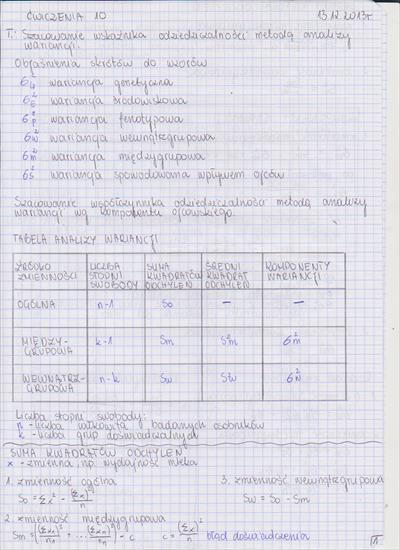 ĆWICZENIA 10 13.12.2013r
T: Szacowanie wskaźnika odziedziczalności metodą analizy
wariancji.
Objaśnienia skrótów do wzorów
wariancja genetyczna
wariancja środowiskowa
wariancja fenotypowa
wariancja wewnątrzgrupowa
wariancja międzygrupowa
wariancja spowodowana wpływem ojców
Szacowanie współczynnika odziedziczalności metodą analizy
wariancji wg komponentu ojcowskiego.
TABELA ANALIZY WARIANCJI
ŹRÓDŁO ZMIENNOŚCI
LICZBA STOPNI SWOBODY
SUMA KWADRATÓW ODCHYLEŃ
ŚREDNI KWADRAT ODCHYLEŃ
KOMPONENTY WARIANCJI
OGÓLNA n-1 So - -
MIĘDZY-
GRUPOWA k-1 Sm S²m 6²m
WEWNĄTRZ-
GRUPOWA n-k Sw S²w 6²w
Liczba stopni swobody:
n - liczba całkowita badanych osobników
k - liczba grup doświadczalnych
SUMA KWADRATÓW ODCHYLEŃ
x - zmienna, np. wydajność mleka
1. zmienność ogólna 3. zmienność wewnątrzgrupowa
So = Σx² - (Σx)²/n Sw = So - Sm
2. zmienność międzygrupowa
c = (Σx)²/n błąd doświadczenia
1